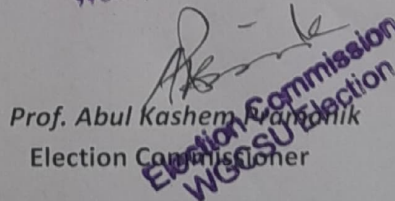 Prof. Abul Kashem Pramanik
Election Commissioner
Election Commission
WGCSU Election